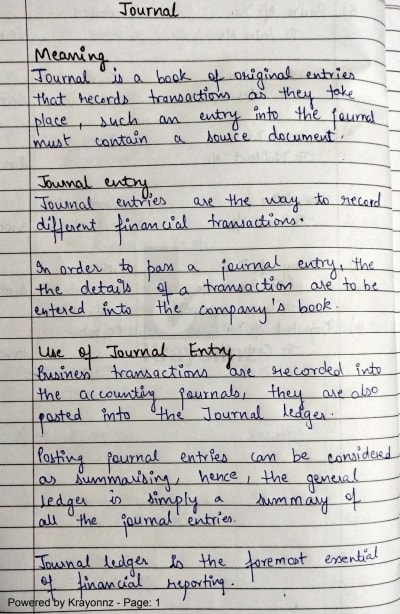 Journal
Meaning
Journal is a book of original entries
that records transactions as they take
place, such an entry into the journal
must contain a source document.
Journal entry
Journal entries are the way to record
different financial transactions.
In order to pass a journal entry, the
the details of a transaction are to be
entered into the company's book.
Use of Journal Entry
Business transactions are recorded into
the accounting journals, they are also
posted into the Journal ledger.
Posting journal entries can be considered
as summarising, hence, the general
ledger is simply a summary of
all the journal entries.
Journal ledger is the foremost essential
of financial reporting.
Powered by Krayonnz - Page: 1